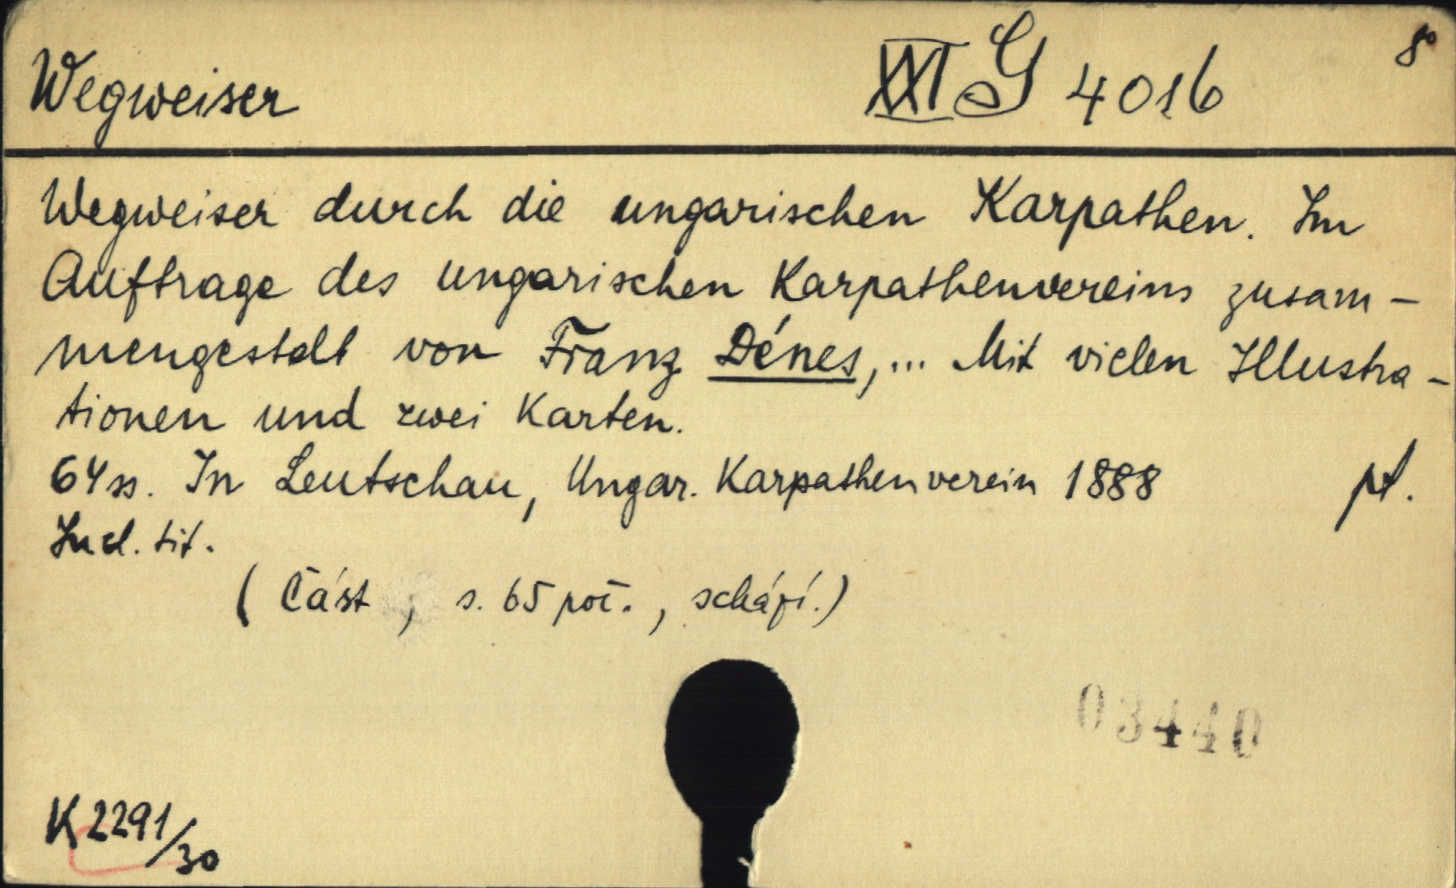 Wegweiser XXI G 4016 8°
Wegweiser durch die ungarischen Karpathen. Im
Auftrage des ungarischen Karpathenvereins zusam-
mengestellt von Franz Dénes,... Mit vielen Illustra-
tionen und zwei Karten.
64 ss. In Leutschau, Ungar. Karpathenverein 1888 pt.
Incl. tit.
(Část, s. 65 poč., scházi.)
03440
K 2291/30